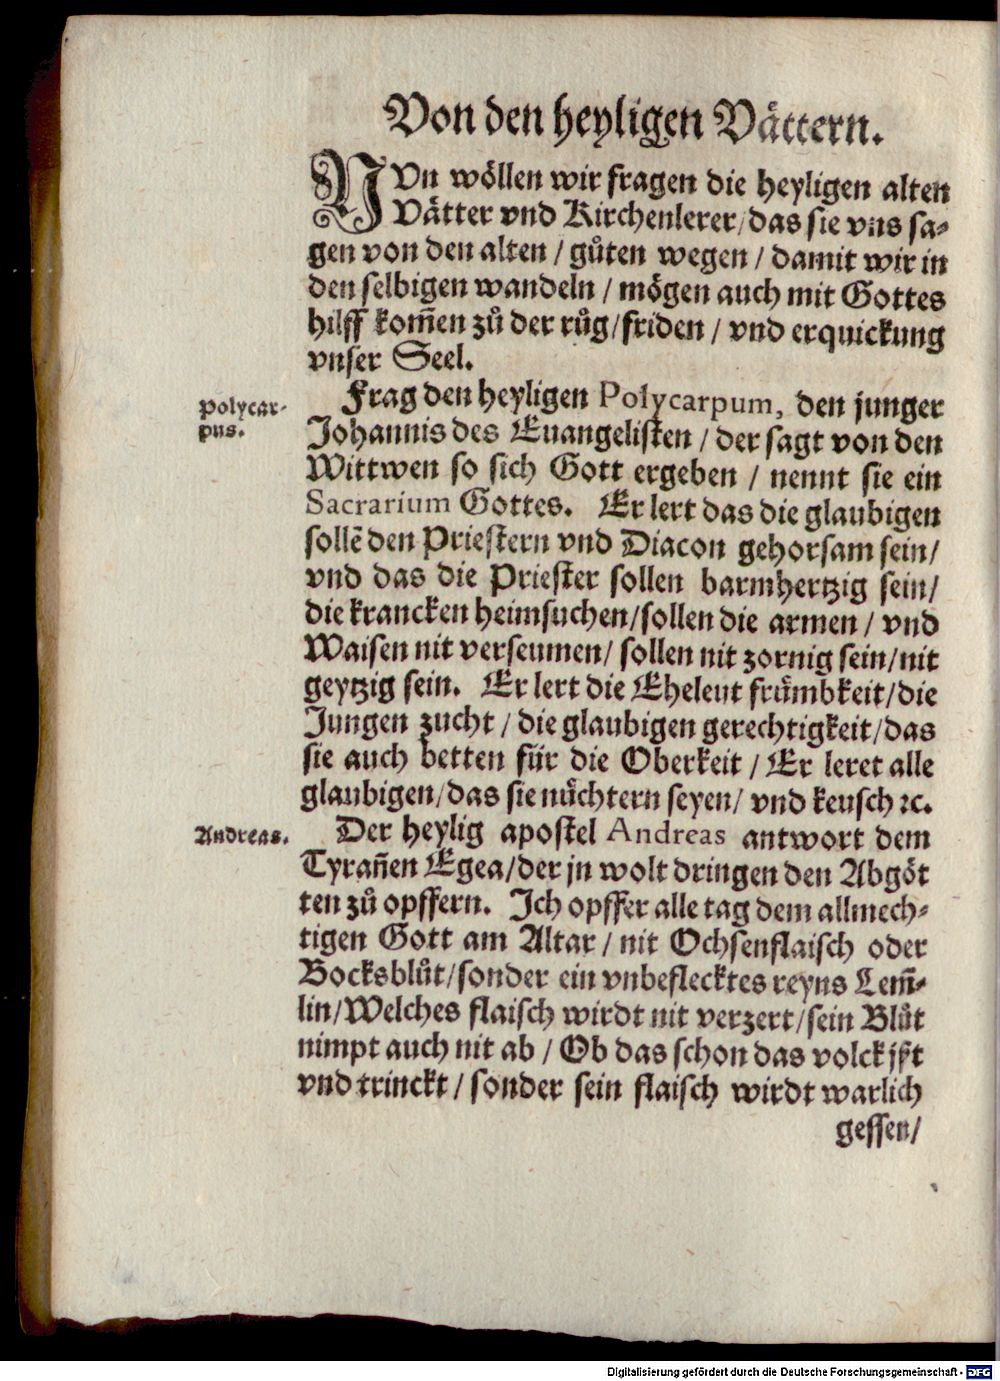 Von den heyligen Våttern.
NVn wöllen wir fragen die heyligen alten
Våtter vnd Kirchenlerer/das sie vns sa-
gen von den alten / gůten wegen / damit wir in
den selbigen wandeln / mögen auch mit Gottes
hilff kom̃en zů der růg/friden / vnd erquickung
vnser Seel.
Polycar-
pus.
Frag den heyligen Polycarpum, den junger
Johannis des Euangelisten / der sagt von den
Wittwen so sich Gott ergeben / nennt sie ein
Sacrarium Gottes. Er lert das die glaubigen
sollẽ den Priestern vnd Diacon gehorsam sein/
vnd das die Priester sollen barmhertzig sein/
die krancken heimsuchen/sollen die armen / vnd
Waisen nit verseumen/ sollen nit zornig sein/nit
geytzig sein. Er lert die Eheleut frümbkeit/die
Jungen zucht / die glaubigen gerechtigkeit/das
sie auch betten für die Oberkeit / Er leret alle
glaubigen/das sie nüchtern seyen/ vnd keusch ꝛc.
Andreas.
Der heylig apostel Andreas antwort dem
Tyrañen Egea/der jn wolt dringen den Abgöt
ten zů opffern. Ich opffer alle tag dem allmech-
tigen Gott am Altar / nit Ochsenflaisch oder
Bocksblůt/sonder ein vnbeflecktes reyns Lem̃-
lin/Welches flaisch wirdt nit verzert/sein Blůt
nimpt auch nit ab / Ob das schon das volck jßt
vnd trinckt / sonder sein flaisch wirdt warlich
gessen/
Digitalisierung gefördert durch die Deutsche Forschungsgemeinschaft - DFG